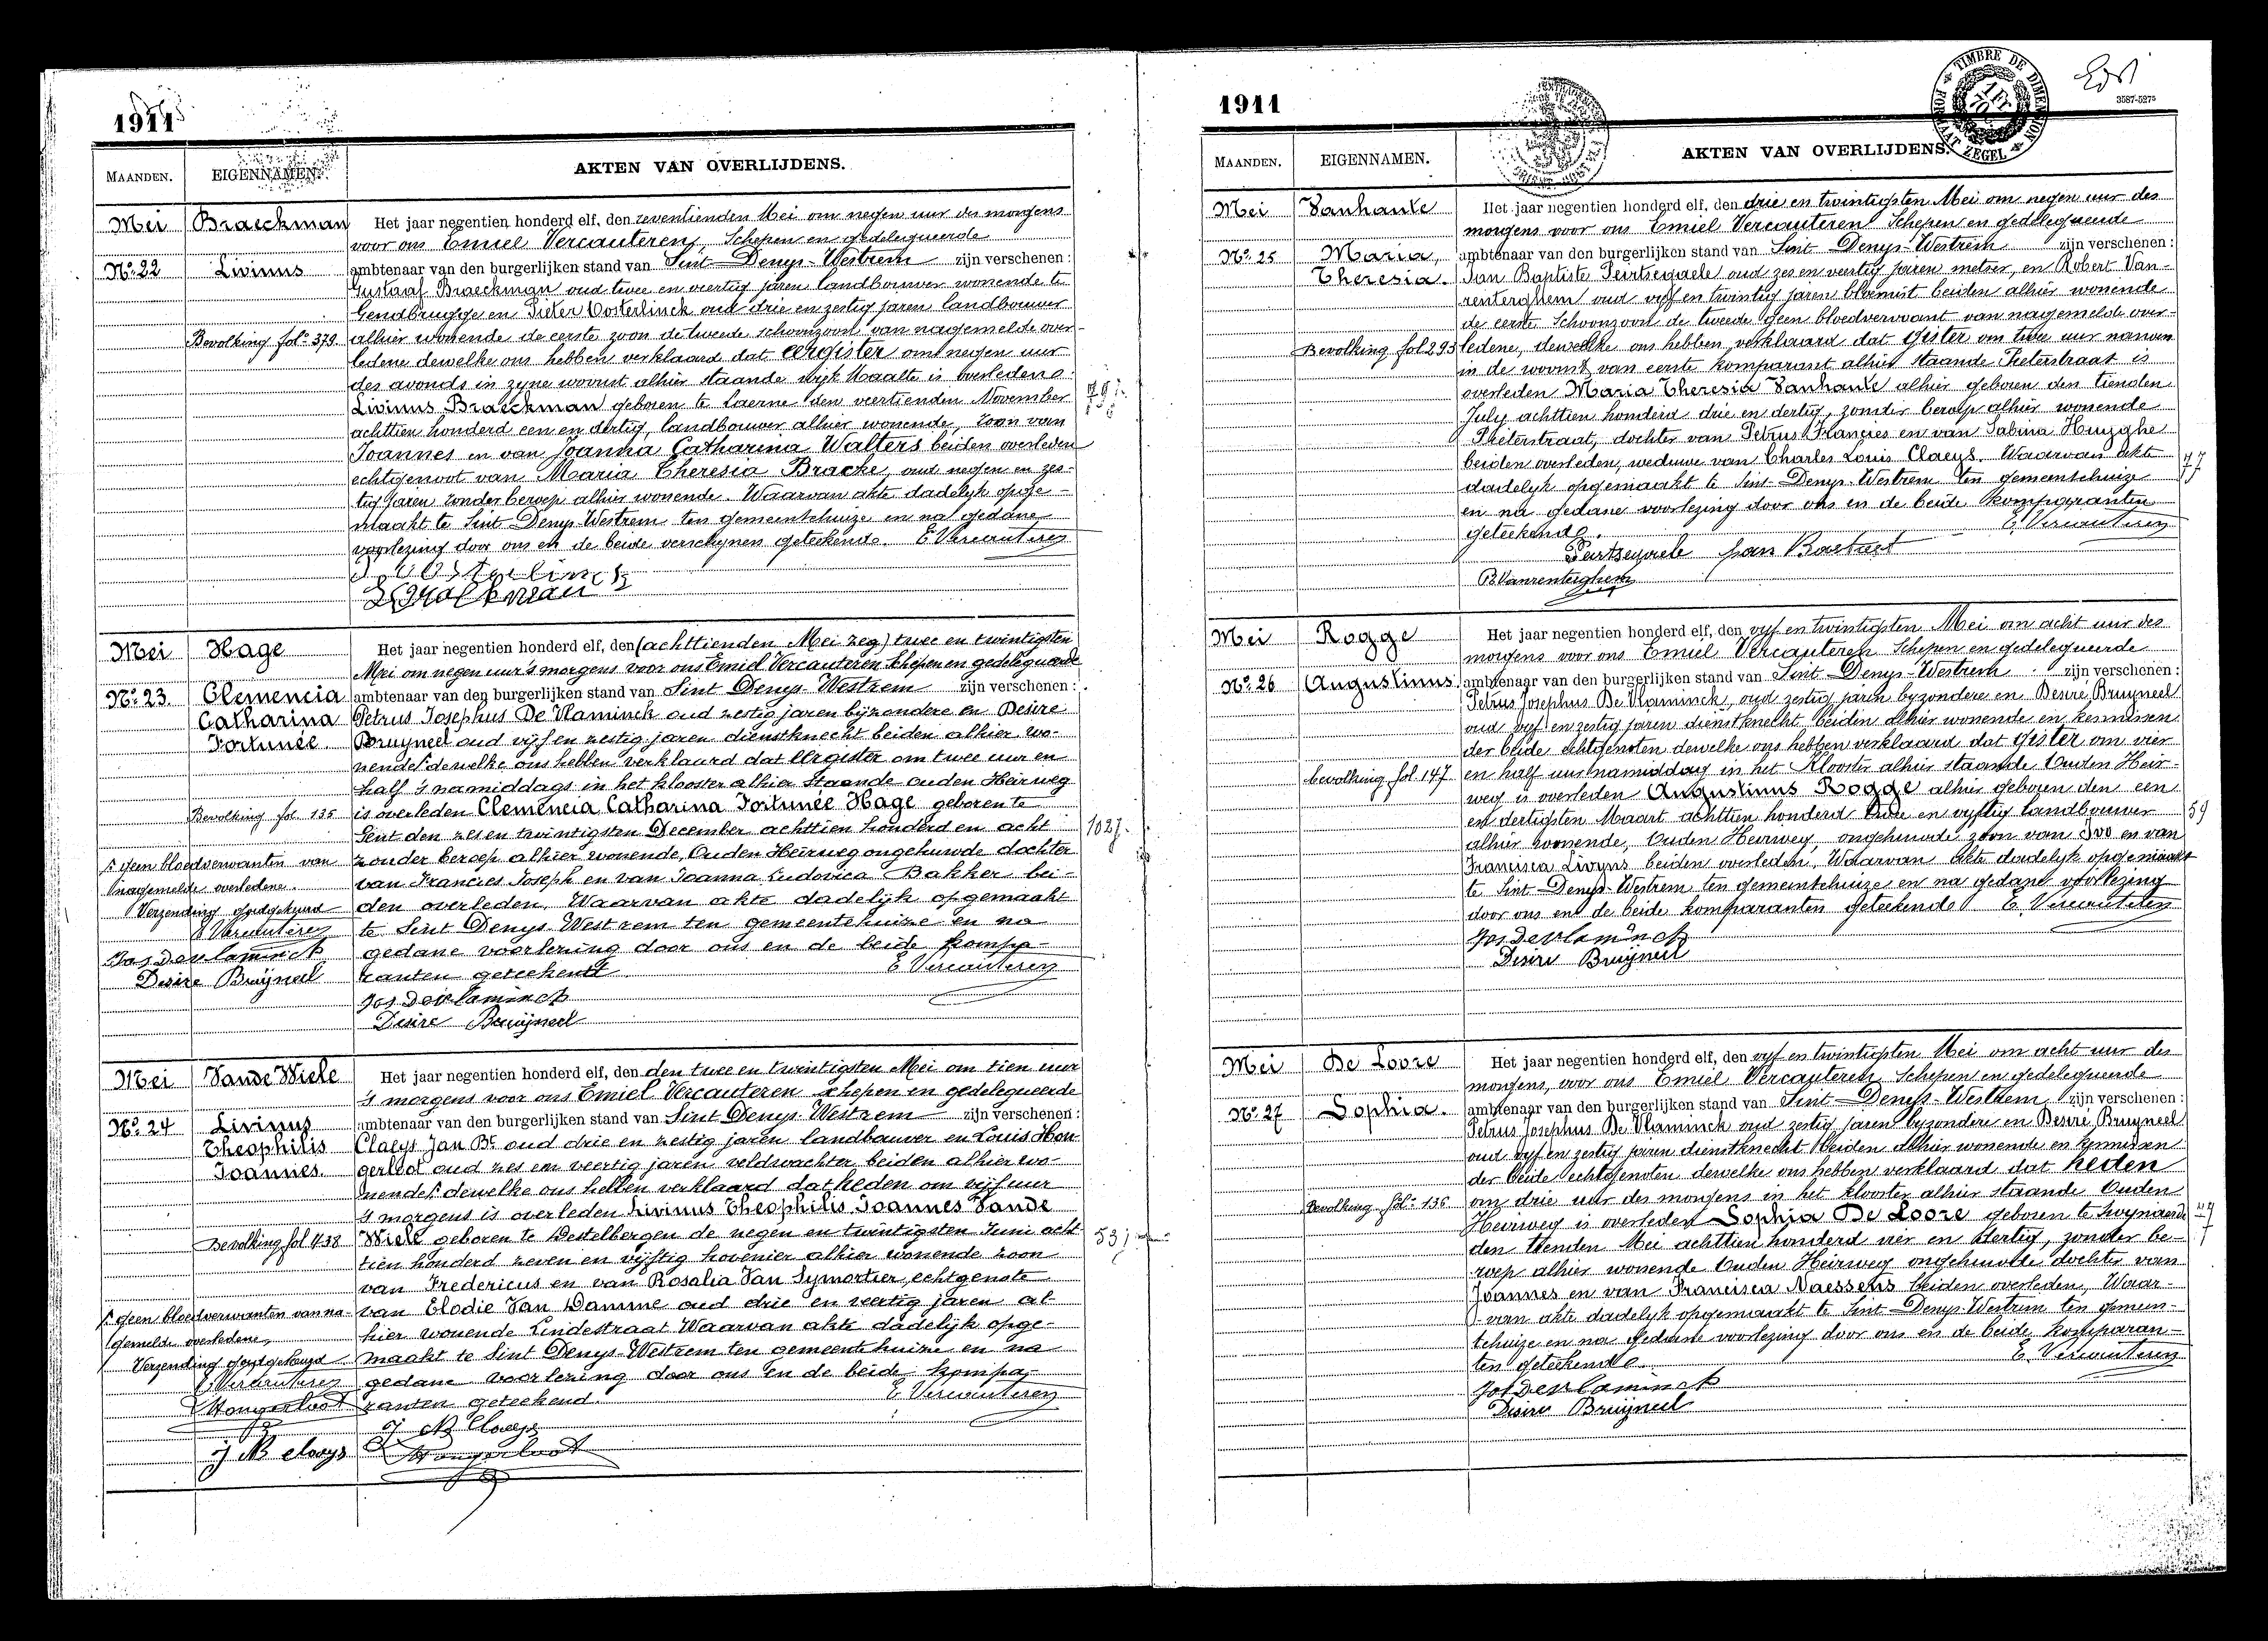 1911
AKTEN VAN OVERLIJDENS.
MAANDEN.
EIGENNAMEN.
Mei
Braeckman
Nº 22
Livinus
Bevolking folº 379
Het jaar negentien honderd elf, den zeventienden Mei om negen uur des morgens
voor ons Emiel Vercauteren, Schepen en gedelegueerde
ambtenaar van den burgerlijken stand van Sint Denys-Westrem zijn verschenen:
Gustaaf Braeckman oud twee en veertig jaren landbouwer wonende te
Gendbrugge en Pieter Oosterlinck oud drie en zestig jaren landbouwer
alhier wonende de eerste zoon de tweede schoonzoon van nagemelde over-
ledene dewelke ons hebben verklaard dat eergister om negen uur
des avonds in zyne woonst alhier staande wijk Maalte is overleden
Livinus Braeckman geboren te Laerne den veertienden November
achttien honderd een en dertig, landbouwer alhier wonende, zoon van
Joannes en van Joanna Catharina Walters beiden overleden
echtgenoot van Maria Theresia Bracke, oud negen en zes-
tig jaren zonder beroep alhier wonende. Waarvan akte dadelyk opge-
maakt te Sint Denys Westrem ten gemeentehuize en na gedane
voorlezing door ons en de beide verschynen geteekend. E Vercauteren
P. Oosterlinck
Braeckman
79j.
Mei
Hage
Nº 23.
Clemencia
Catharina
Fortunée.
Bevolking fol. 135
geen bloedverwanten van
nagemelde overledene.
Verzending goedgekeurd
E Vercauteren
Jos Devlaminck
Desire Bruÿneel
Het jaar negentien honderd elf, den (achttienden Mei zeg) twee en twintigsten
Mei om negen uur 's morgens voor ons Emiel Vercauteren Schepen en gedelegueerde
ambtenaar van den burgerlijken stand van Sint Denys-Westrem zijn verschenen:
Petrus Josephus De Vlaminck oud zestig jaren bijzondere en Desire
Bruyneel oud vijf en zestig jaren dienstknecht beiden alhier wo-
nende dewelke ons hebben verklaard dat eergister om twee uur en
half 's namiddags in het klooster alhier staande ouden Heirweg
is overleden Clemencia Catharina Fortunée Hage geboren te
Gent den zes en twintigsten December achttien honderd en acht
zonder beroep alhier wonende, Ouden Heirweg ongehuwde dochter
van Francies Joseph en van Joanna Ludovica Bakker bei-
den overleden. Waarvan akte dadelijk opgemaakt
te Sint Denys-Westrem ten gemeentehuize en na
gedane voorlezing door ons en de beide kompa-
ranten geteekend E Vercauteren
Jos Devlaminck
Desire Bruÿneel
102j.
Mei
Vande Wiele
Nº 24
Livinus
Theophilis
Joannes.
Bevolking fol 438
geen bloedverwanten van na-
gemelde overledene,
Verzending goedgekeurd
E Vercauteren
Hongerloot
J B Claeys
Het jaar negentien honderd elf, den den twee en twintigsten Mei om tien uur
's morgens voor ons Emiel Vercauteren schepen en gedelegueerde
ambtenaar van den burgerlijken stand van Sint Denys Westrem zijn verschenen:
Claeys Jan Bt. oud drie en zestig jaren landbouwer en Louis Hon-
gerloot oud zes en veertig jaren veldwachter beiden alhier wo-
nende dewelke ons hebben verklaard dat heden om vijf uur
's morgens is overleden Livinus Theophilis Joannes Vande
Wiele geboren te Destelbergen de negen en twintigsten Juni acht
tien honderd zeven en vijftig hovenier alhier wonende zoon
van Fredericus en van Rosalia Van Symortier, echtgenote
van Elodie Van Damme oud drie en veertig jaren al-
hier wonende Lindestraat Waarvan akte dadelijk opge-
maakt te Sint Denys-Westrem ten gemeentehuize en na
gedane voorlezing door ons en de beide kompa-
ranten geteekend. E Vercauteren
J B Claeys
Hongerloot
53j
1911
TIMBRE DE DIMENSION
FORMAAT ZEGEL
3587-5275
AKTEN VAN OVERLIJDENS.
MAANDEN.
EIGENNAMEN.
Mei
Vanhaute
Nº 25
Maria,
Theresia.
Bevolking fol 293
Het jaar negentien honderd elf, den drie en twintigsten Mei om negen uur des
morgens voor ons Emiel Vercauteren Schepen en gedelegueerde
ambtenaar van den burgerlijken stand van Sint Denys-Westrem zijn verschenen:
Jan Baptiste Peirtsegaele oud zes en veertig jaren metser, en Robert Van-
renterghem oud vyf en twintig jaren bloemist beiden alhier wonende
de eerste Schoonzoon de tweede geen bloedverwant van nagemelde over-
ledene, dewelke ons hebben verklaard dat gister om twee uur namen
in de woonst van eerste komparant alhier staande Pieterstraat is
overleden Maria Theresia Vanhaute alhier geboren den tienden
July achttien honderd drie en dertig, zonder beroep alhier wonende
Pieterstraat, dochter van Petrus Francies en van Sabina Huyghe
beiden overleden, weduwe van Charles Louis Claeys. Waarvan akte
dadelyk opgemaakt te Sint-Denys-Westrem ten gemeentehuize
en na gedane voorlezing door ons en de beide komparanten
geteekend. E. Vercauteren
Peirtsegaele Jan Baetiest
R. Vanrenterghem
77
Mei
Rogge
Nº 26
Augustinus
bevolking fol 147
Het jaar negentien honderd elf, den vyf en twintigsten Mei om acht uur des
morgens voor ons Emiel Vercauteren Schepen en gedelegueerde
ambtenaar van den burgerlijken stand van Sint Denys-Westrem zijn verschenen:
Petrus Josephus De Vlaminck, oud zestig jaren byzondere en Desire Bruyneel
oud vyf en zestig jaren dienstknecht beiden alhier wonende en kennissen
der beide echtgenoten dewelke ons hebben verklaard dat gister om vier
en half uur namiddag in het Klooster alhier staande Ouden Heir-
weg is overleden Augustinus Rogge alhier geboren den een
en dertigsten Maart achttien honderd twee en vyftig landbouwer
alhier wonende, Ouden Heirweg, ongehuwde zoon van Ivo en van
Francisca Livyns beiden overleden, Waarvan akte dadelyk opgemaakt
te Sint Denys-Westrem ten gemeentehuize en na gedane voorlezing
door ons en de beide komparanten geteekend E. Vercauteren
Jos Devlaminck
Desire Bruÿneel
59
Mei
De Loore
Nº 27
Sophia.
Bevolking folº 136
Het jaar negentien honderd elf, den vyf en twintigsten Mei om acht uur des
morgens, voor ons Emiel Vercauteren Schepen en gedelegueerde
ambtenaar van den burgerlijken stand van Sint Denys-Westrem zijn verschenen:
Petrus Josephus De Vlaminck oud zestig jaren byzondere en Desiré Bruyneel
oud vyf en zestig jaren dienstknecht beiden alhier wonende en kennissen
der beide echtgenoten dewelke ons hebben verklaard dat heden
om drie uur des morgens in het klooster alhier staande Ouden
Heirweg is overleden Sophia De Loore geboren te Zwynaerde
den tienden Mei achttien honderd vier en dertig, zonder be-
roep alhier wonende Ouden Heirweg ongehuwde dochter van
Joannes en van Francisca Naessens beiden overleden, Waar-
van akte dadelyk opgemaakt te Sint Denys-Westrem ten gemeen-
tehuize en na gedane voorlezing door ons en de beide komparan-
ten geteekend. E. Vercauteren
Jos Devlaminck
Desire Bruÿneel
77